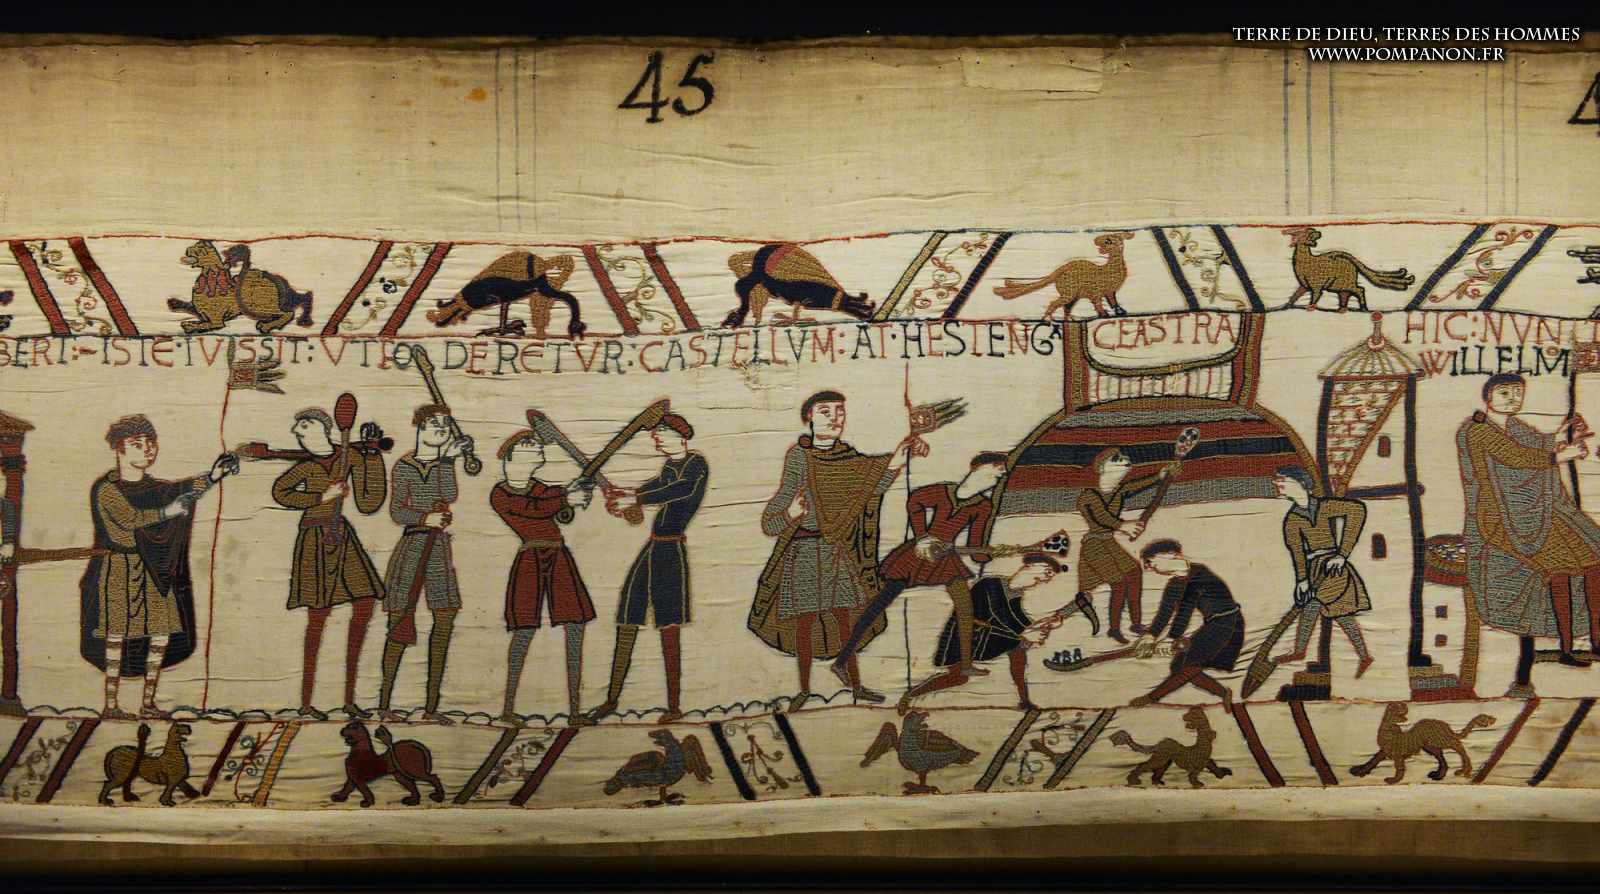 TERRE DE DIEU, TERRES DES HOMMES
WWW.POMPANON.FR
45
BERT:-ISTE·IVSSIT: VTFODERETVR: CASTELLVM: AT·HESTENGA CEASTRA
HIC: NVNT
WILLELM